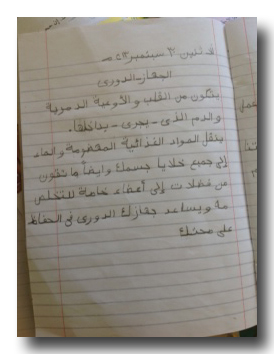 الاثنين ٣٠ سبتمبر
الجهاز الدورى
يتكون من القلب والأوعية الدموية
والدم الذى يجرى بداخلها.
ينقل المواد الغذائية المهضومة والماء
إلى جميع خلايا جسمك وايضاً ما تكون
من فضلات إلى أعضاء خاصة للتخلص
منه ويساعد جهازك الدورى فى الحفاظ
على صحتك